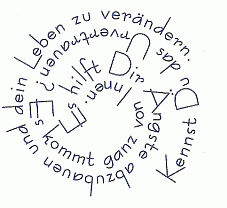 Kennst Du das Urvertrauen? Es hilft Dir Ängste abzubauen und dein Leben zu verändern. Es kommt ganz von Innen.